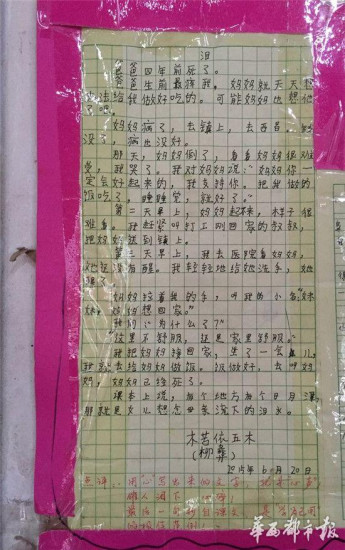 泪
爸爸四年前死了。
爸爸生前最疼我，妈妈就天天想
办法给我做好吃的。可能妈妈也想他
了吧。
妈妈病了，去镇上，去西昌，钱
没了，病也没好。
那天，妈妈倒了，看看妈妈很难
受，我哭了。我对妈妈说：“妈妈你一
定会好起来的，我支持你，把我做的
饭吃了，睡睡觉，就好了。”
第二天早上，妈妈起来，样子很
难看。我赶紧叫打工刚回家的叔叔，
把妈妈送到镇上。
第三天早上，我去医院看妈妈，
她还没有醒。我轻轻地给她洗手，她
醒了。
妈妈拉着我的手，叫我的小名：“妹
妹，妈妈想回家。”
我问：“为什么了？”
“这里不舒服，还是家里舒服。”
我把妈妈接回家，坐了一会儿，
我就去给妈妈做饭。饭做好，去叫妈
妈，妈妈已经死了。
课本上说，有个地方有个日月潭，
那就是女儿想念母亲流下的泪水。
木苦依五木
（柳彝）
2015年6月20日
点评：用心写出来的文字
华西都市报